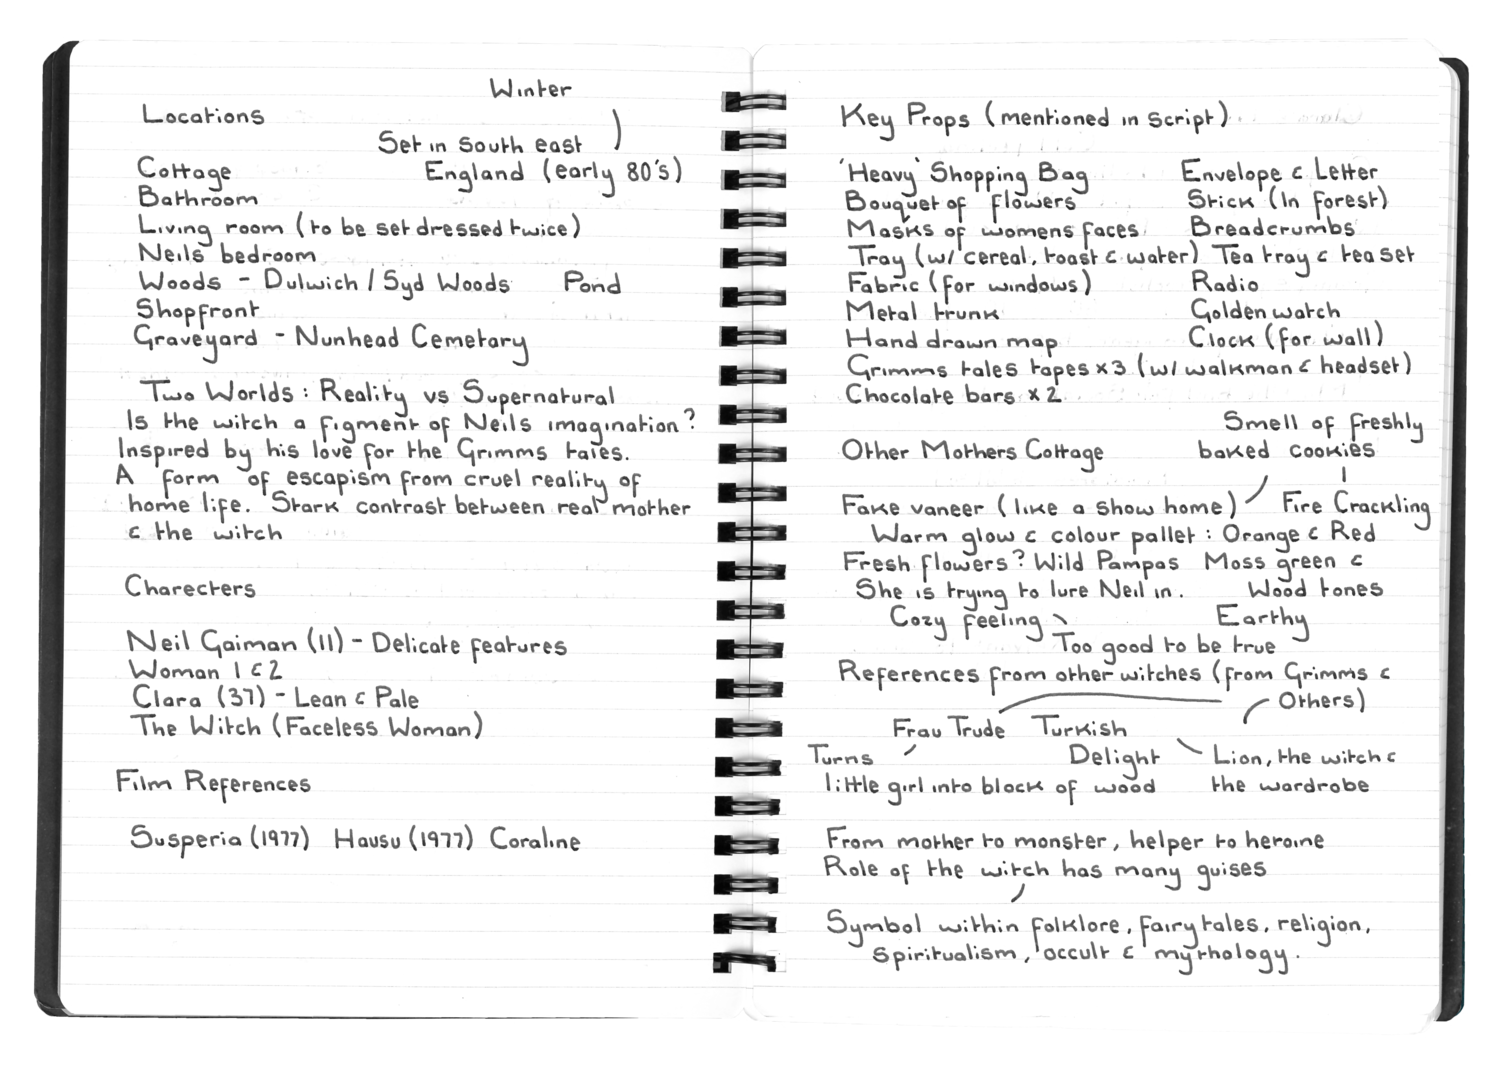 Winter
Locations
Set in south east
Cottage England (early 80's)
Bathroom
Living room (to be set dressed twice)
Neils bedroom
Woods - Dulwich / Syd Woods Pond
Shopfront
Graveyard - Nunhead Cemetary
Two Worlds : Reality vs Supernatural
Is the witch a figment of Neils imagination?
Inspired by his love for the Grimms tales.
A form of escapism from cruel reality of
home life. Stark contrast between real mother
& the witch
Charecters
Neil Gaiman (11) - Delicate features
Woman 1 & 2
Clara (37) - Lean & Pale
The Witch (Faceless Woman)
Film References
Susperia (1977) Hausu (1977) Coraline
Key Props (mentioned in script)
'Heavy' Shopping Bag Envelope & Letter
Bouquet of flowers Stick (In forest)
Masks of womens faces Breadcrumbs
Tray (w/ cereal, toast & water) Tea tray & tea set
Fabric (for windows) Radio
Metal trunk Golden watch
Hand drawn map Clock (for wall)
Grimms tales tapes x3 (w/ walkman & headset)
Chocolate bars x 2
Smell of freshly
Other Mothers Cottage baked cookies
Fake vaneer (like a show home) Fire Crackling
Warm glow & colour pallet : Orange & Red
Fresh flowers? Wild Pampas Moss green &
She is trying to lure Neil in. Wood tones
Cozy feeling Earthy
Too good to be true
References from other witches (from Grimms &
Others)
Frau Trude Turkish
Turns Delight Lion, the witch &
little girl into block of wood the wardrobe
From mother to monster, helper to heroine
Role of the witch has many guises
Symbol within folklore, fairytales, religion,
spiritualism, occult & mythology.